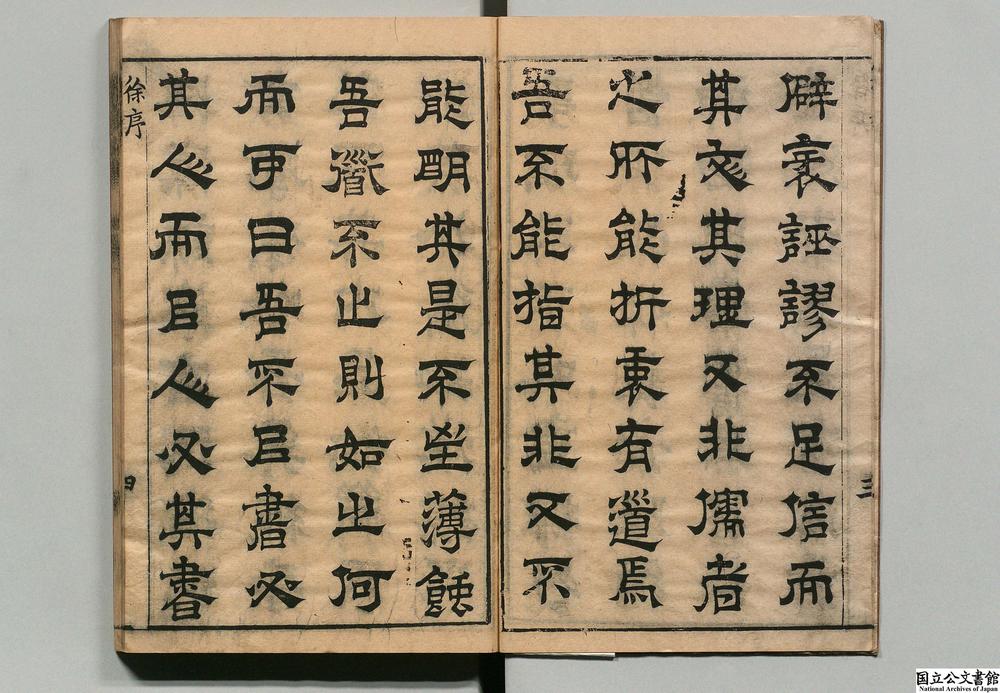 三
僻衺誣謬不足信而
其文其理又非儒者
之所能折衷有道焉
吾不能指其非又不
能明其是不坐薄蝕
吾道不止則如之何
而可曰吾不㠯書必
其人而㠯人必其書
徐序
四
国立公文書館
National Archives of Japan